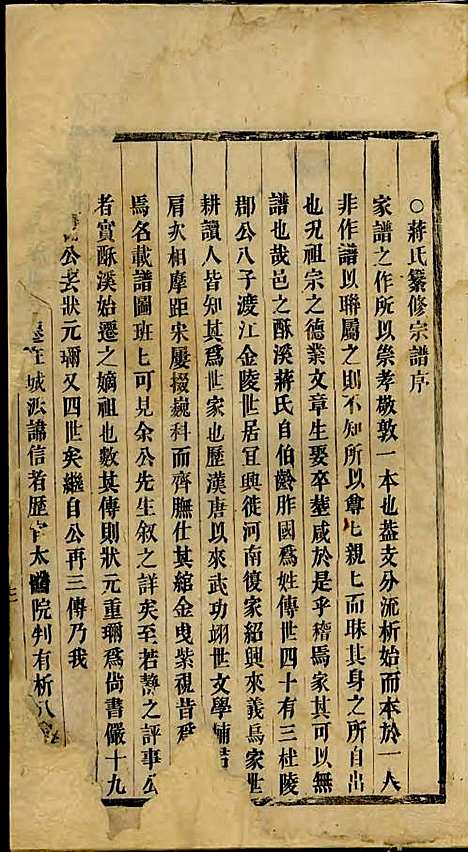 ○蔣氏纂修宗譜序
家譜之作所以崇孝敬敦一本也蓋支分派析始而本於一人
非作譜以聯屬之則不知所以尊上親上而昧其身之所自出
也況祖宗之德業文章生娶卒塟咸於是乎稽焉家其可以無
譜也哉邑之酥溪蔣氏自伯齡胙國為姓傳世四十有三杜陵
郡公八子渡江金陵世居宜興徙河南復家紹興來義烏家世
耕讀人皆知其為世家也歷漢唐以來武功翊世文學輔
肩次相摩距宋屢掇巍科而齊膴仕其綰金曳紫視昔
焉名載譜圖班上可見余公先生叙之詳矣至若 之評事公
者實酥溪始遷之嫡祖也數其傳則狀元重珎為尚書儼十九
公去狀元珎又四世矣繼自公再三傳乃我
城派諱信者歷官太醫院判有析